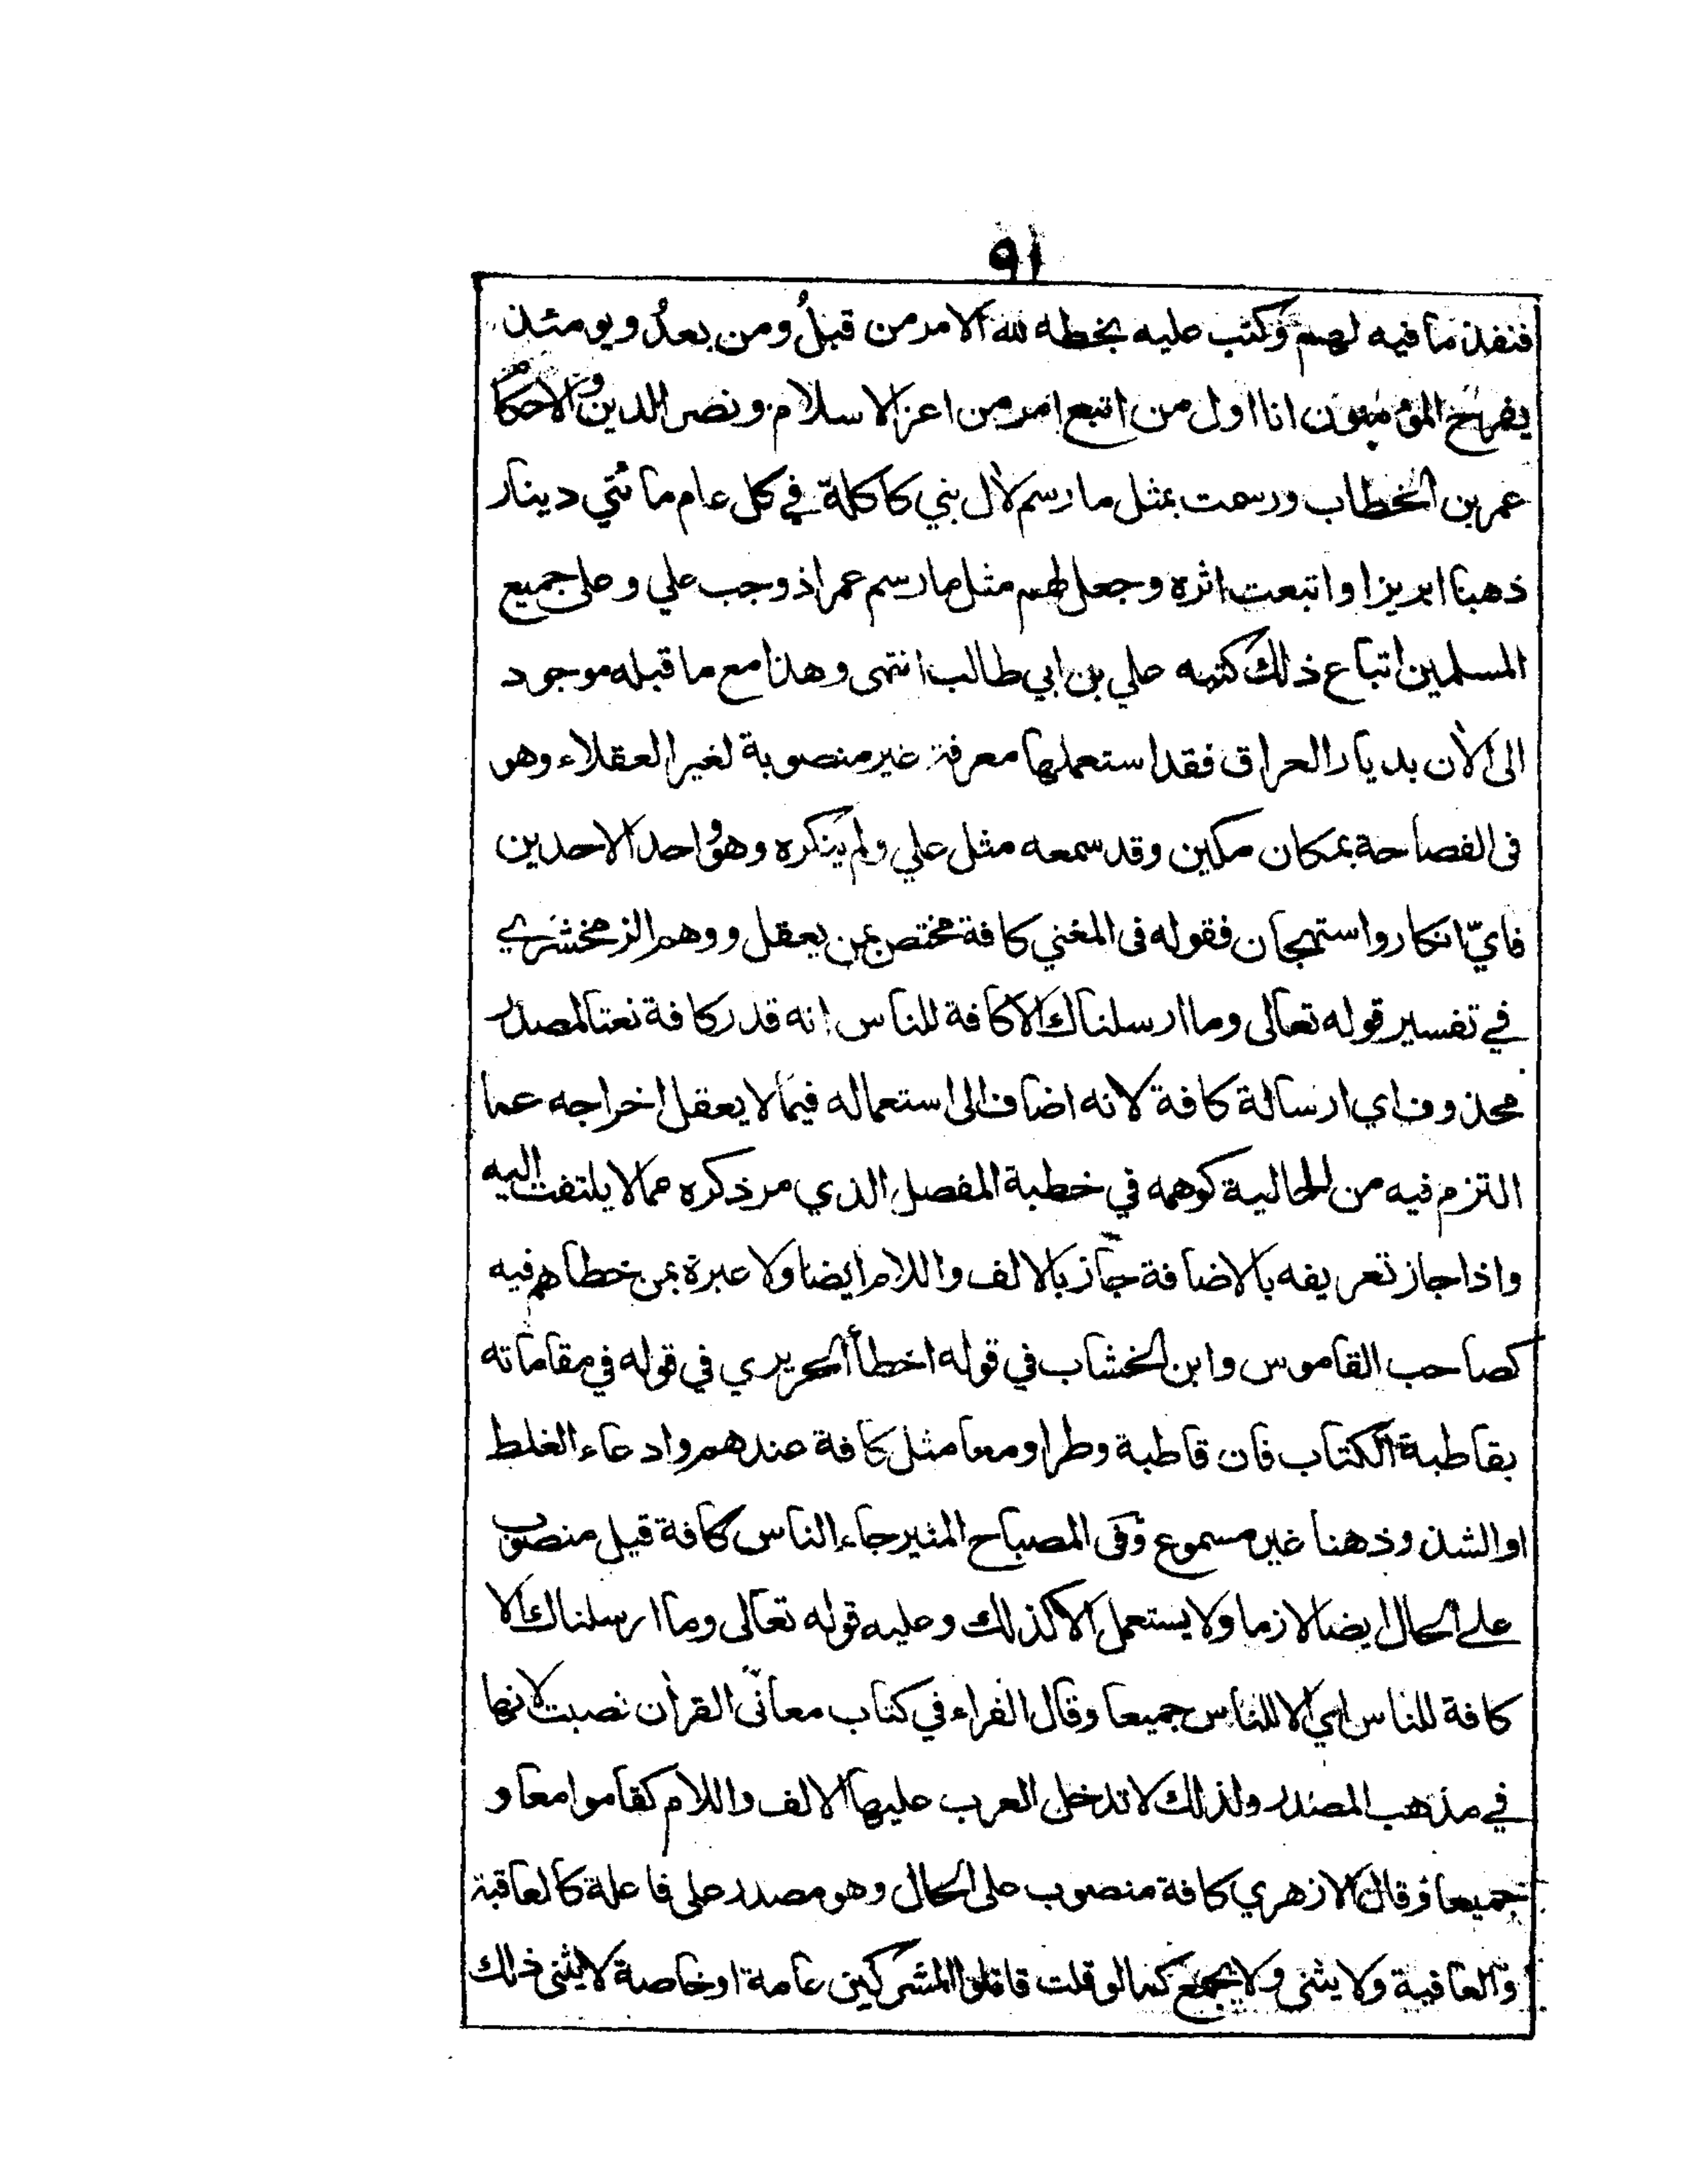 ٩١
فنفذ ما فيه لهم وكتب عليه بخطه لله الامر من قبلُ ومن بعدُ ويومئذ
يفرح المؤمنون انا اول من اتبع امر من اعز الاسلام ونصر الدين والاحكام
عمر بن الخطاب ورسمت بمثل ما رسم لآل بني كاكلة في كل عام مائتي دينار
ذهبنا ابريزا واتبعت اثره وجعل لهم مثل ما رسم عمر اذ وجب علي وعلى جميع
المسلمين اتباع ذلك كتبه علي بن ابي طالب انتهى وهذا مع ما قبله موجود
الى الآن بديار العراق فقد استعملها معرفة غير منصوبة لغير العقلاء وهو
فى الفصاحة بمكان مكين وقد سمعه مثل علي ولم ينكره وهو واحد الاحدين
فايّ انكار واستهجان فقوله فى المغني كافة مختص بمن يعقل ووهم الزمخشري
في تفسير قوله تعالى وما ارسلناك الا كافة للناس انه قدر كافة نعتا لمصدر
محذوف اي ارسالة كافة لانه اضاف الى استعماله فيما لا يعقل اخراجه عما
التزم فيه من الحالية كوهمه في خطبة المفصل الذي مر ذكره مما لا يلتفت اليه
واذا جاز تعريفه بالاضافة جاز بالالف واللام ايضا ولا عبرة بمن خطاهم فيه
كصاحب القاموس وابن الخشاب في قوله اخطأ الحريري في قوله في مقاماته
بقاطبة الكتاب فان قاطبة وطرا ومعا مثل كافة عندهم وادعاء الغلط
او الشذوذ هنا غير مسموع وفى المصباح المنير جاء الناس كافة قيل منصوب
على الحال ايضا لازما ولا يستعمل الا كذلك وعليه قوله تعالى وما ارسلناك الا
كافة للناس اي الا للناس جميعا وقال الفراء في كتاب معانى القرآن نصبت لانها
في مذهب المصدر ولذلك لا تدخل العرب عليها الالف واللام كقاموا معا و
جميعا وقال الازهري كافة منصوب على الحال وهو مصدر على فاعلة كالعاقبة
والعافية ولا يثنى ولا يجمع كما لو قلت قاتلوا المشركين عامة او خاصة لا يثنى ذلك